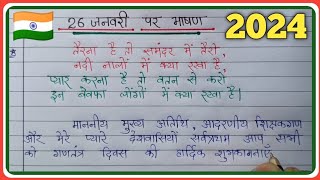 2024
26 जनवरी पर भाषण
तैरना है तो समंदर में तैरो,
नदी नालों में क्या रखा है,
प्यार करना है तो वतन से करो,
इन बेवफा लोगों में क्या रखा है।
माननीय मुख्य अतिथि, आदरणीय शिक्षकगण
और मेरे प्यारे देशवासियों सर्वप्रथम आप सभी
को गणतंत्र दिवस की हार्दिक शुभकामनाएँ